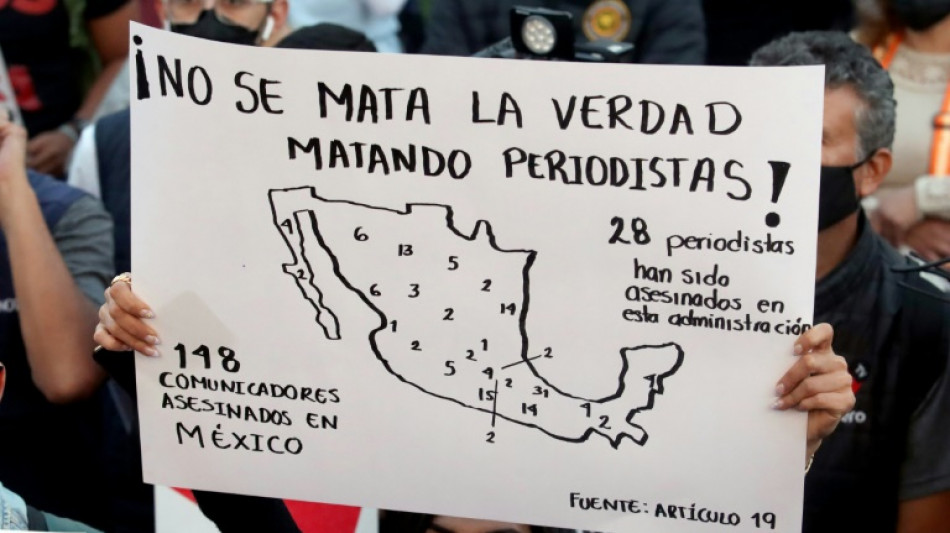 ¡NO SE MATA LA VERDAD
MATANDO PERIODISTAS!
28 periodistas
han sido
asesinados en
esta administración
4 6 13 5
2 6 3 2 14
1 2
2 5 2 1 2
4 2 31
15 14 4 2 1
2
148
COMUNICADORES
ASESINADOS EN
MÉXICO
FUENTE: ARTÍCULO 19